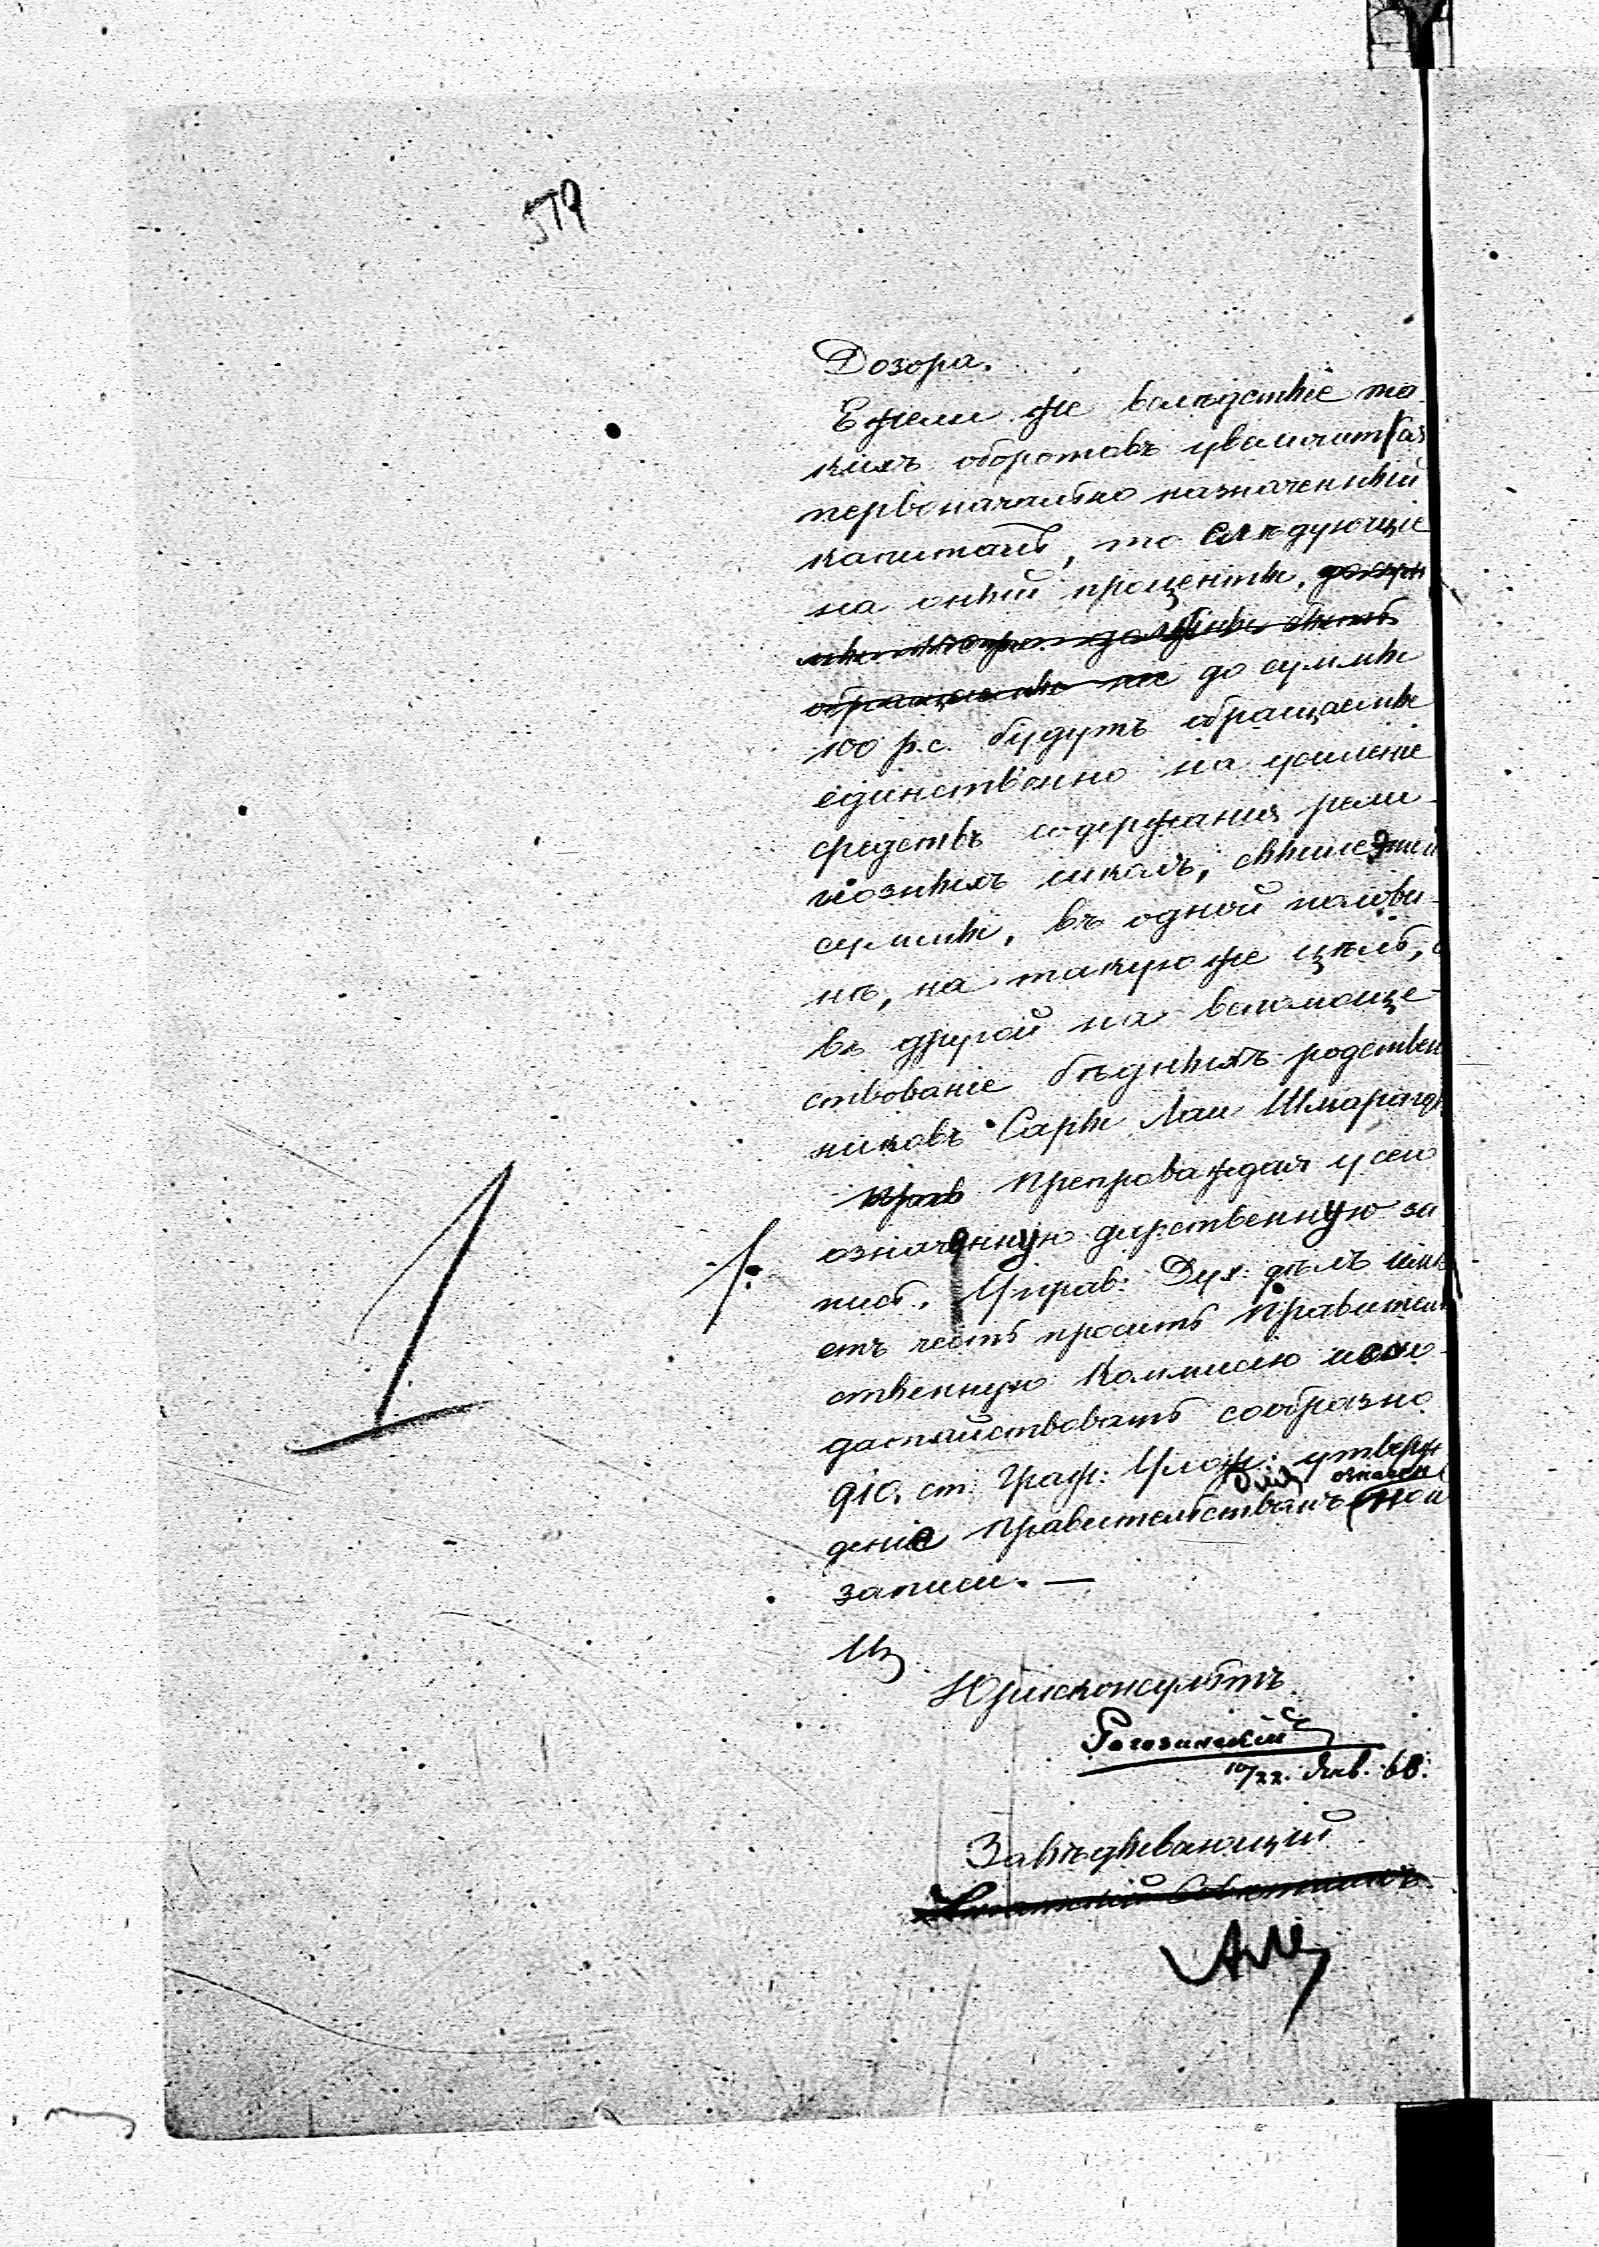 579
Дозора.
Ежели же вслѣдствіе та
кихъ оборотовъ увеличится
первоначально назначенный
капиталъ, то слѣдующіе
на оный проценты,
до суммы
100 р.с. будутъ обращаемы
единственно на усиленіе
средствъ содержанія рели-
гіозныхъ школъ, свыше этой
суммы, въ одной полови-
нѣ, на такую же цѣль, а
въ другой на вспомоще-
ствованіе бѣднымъ родствен
никовъ Сары Лаи Шмарагд
Препровождая у сего
означенную дарственную за
пись, Управ: Дух: дѣлъ имѣ
етъ честь просить Правитель
ственную Коммисію исхо-
датайствовать сообразно
910. ст. Граж: Улож: утверж
деніе Правительствомъ означен
ной
записи. —
Юрисконсультъ
Рогозинскій
10/22. Янв. 68.
Завѣдывающій